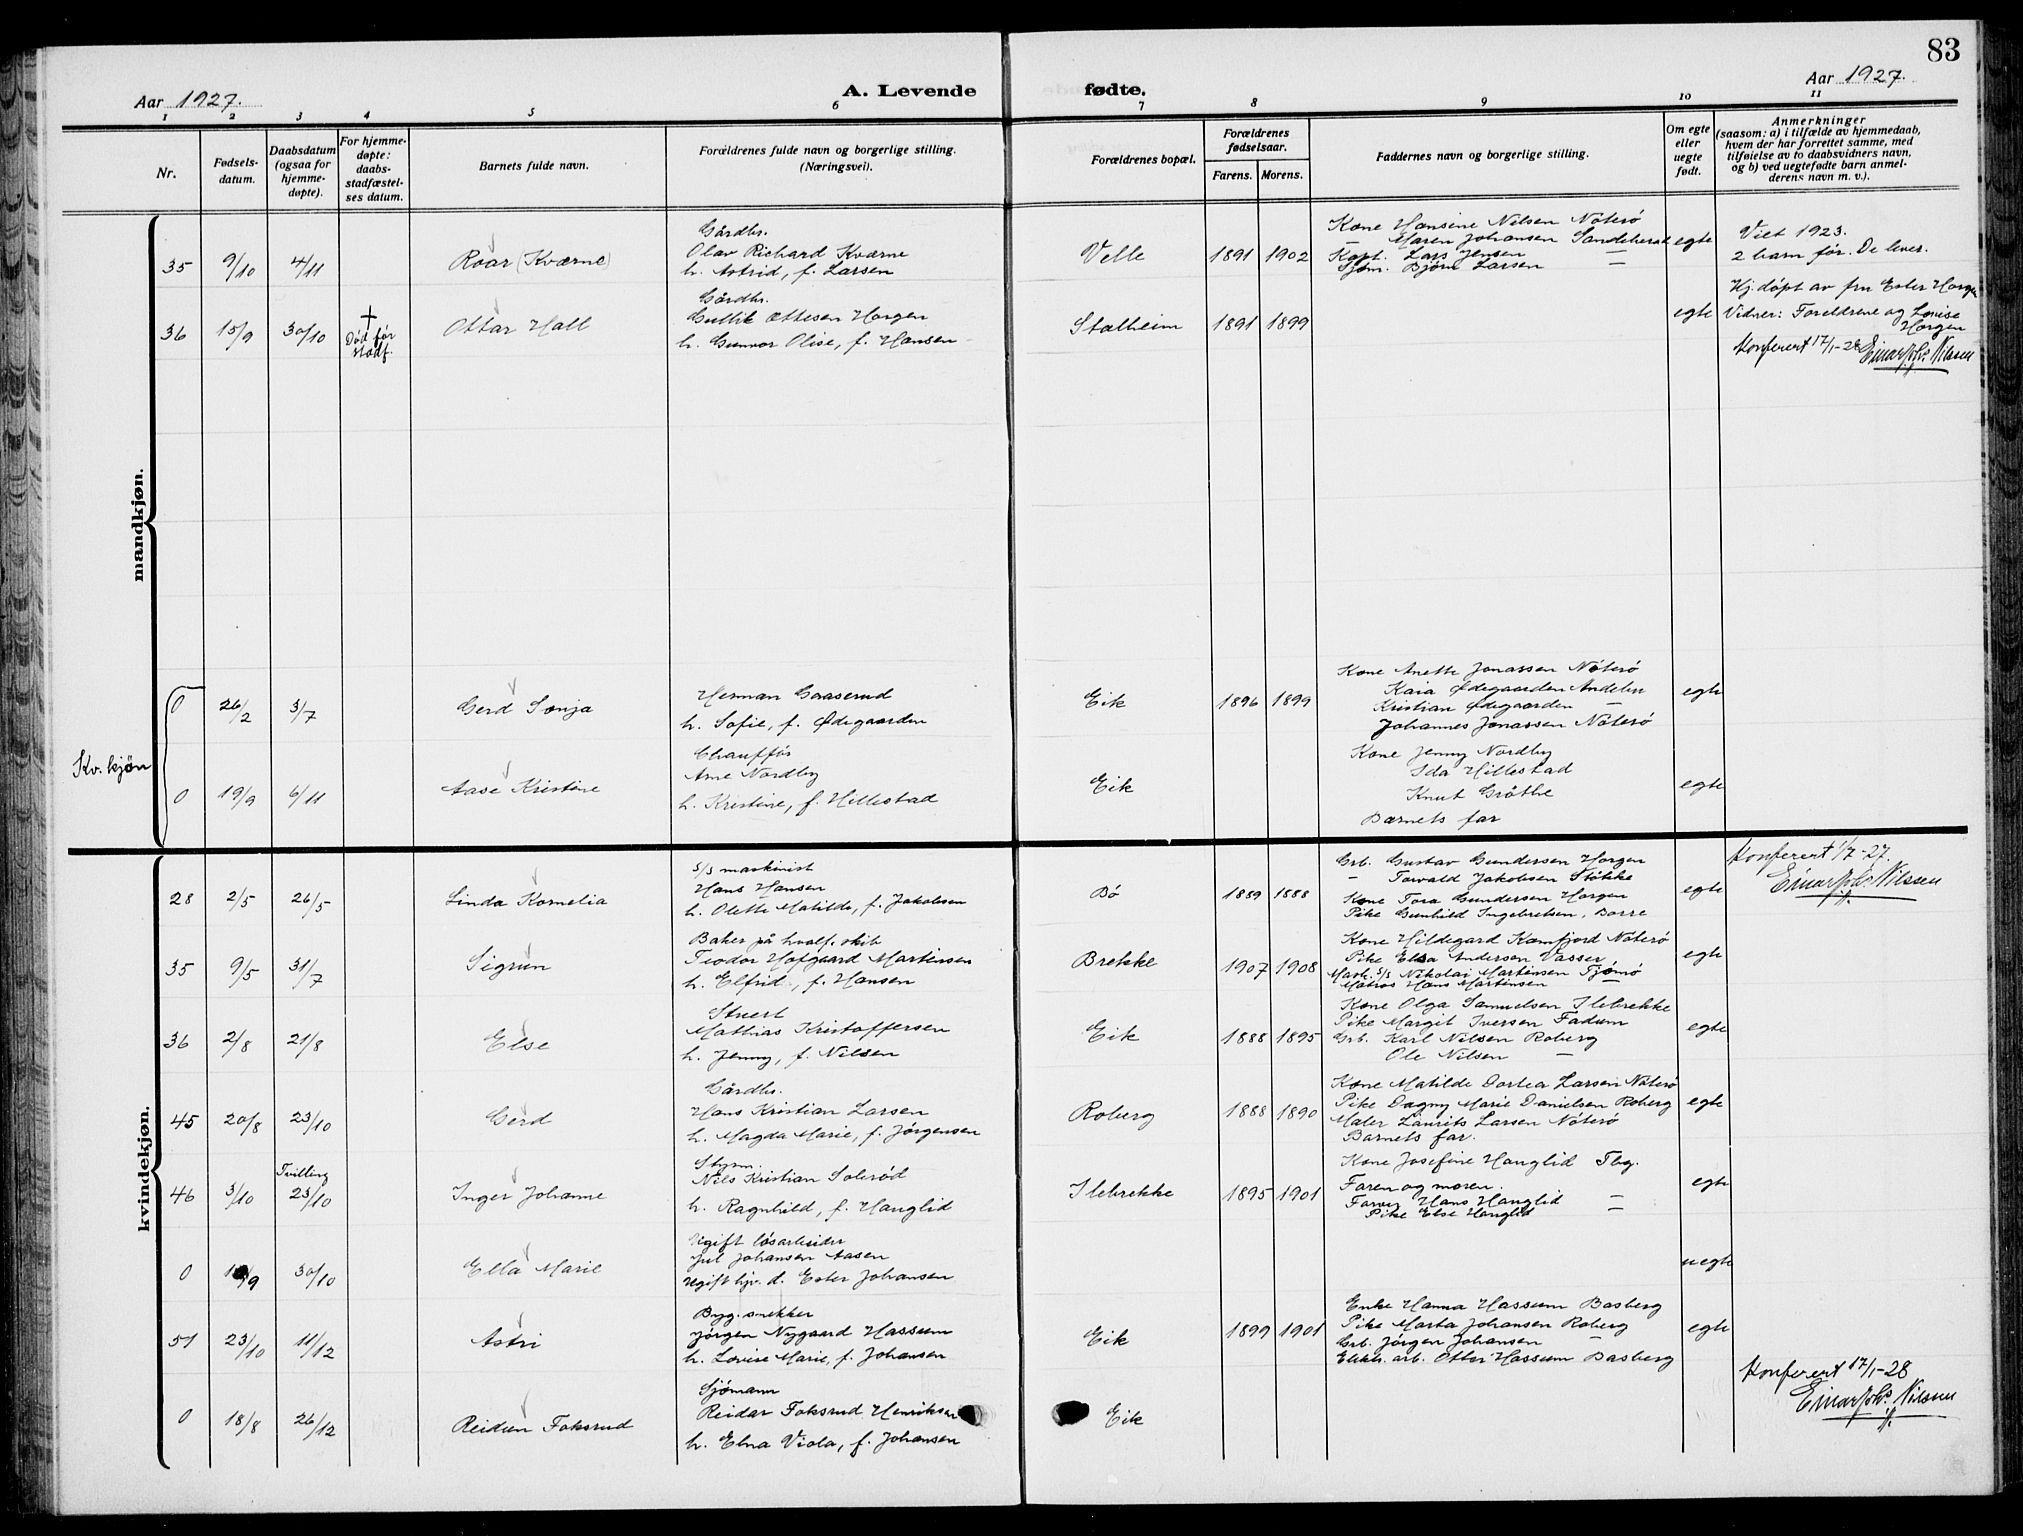 83
Aar 1927.
A. Levende fødte.
Aar 1927.
1 2 3 4 5 6 7 8 9 10 11
Nr.
Fødsels-
datum.
Daabsdatum
(ogsaa for
hjemme-
døpte).
For hjemme-
døpte:
daabs-
stadfæstel-
ses datum.
Barnets fulde navn.
Forældrenes fulde navn og borgerlige stilling.
(Næringsvei).
Forældrenes bopæl.
Forældrenes
fødselsaar.
Farens. Morens.
Faddernes navn og borgerlige stilling.
Om egte
eller
uegte
født.
Anmerkninger
(saasom: a) i tilfælde av hjemmedaab,
hvem der har forrettet samme, med
tilføielse av to daabsvidners navn,
og b) ved uegtefødte barn anmel-
derens navn m. v.).
mandkjøn.
35 9/10 4/11
Roar (Kværne)
Gårdbr.
Olav Richard Kværne
h. Astrid, f. Larsen
Velle 1891 1902
Kone Hansine Nilsen Nøterø
— Maren Johansen Sandeherad
Kapt. Lars Jensen —
Sjøm. Bjørn Larsen —
egte
Viet 1923.
2 barn før. De lever.
36 15/9 30/10
† Død før
stadf.
Ottar Hall
Gårdbr.
Gullik Ottesen Horgen
h. Gunvor Olise, f. Hansen
Stalheim 1891 1899
egte
Hj. døpt av fru Ester Horgen
Vidner: Foreldrene og Lovise
Horgen
Konferert 17/1-28 Einar Joh. Nilssen
Kv. kjøn
0 26/2 3/7
Gerd Sonja
Herman Gaaserud
h. Sofie, f. Ødegaarden
Eik 1896 1899
Kone Anette Jonassen Nøterø
Kaia Ødegaarden Andebu
Kristian Ødegaarden —
Johannes Jonassen Nøterø
egte
0 19/9 6/11
Aase Kristine
Chauffør
Arne Nordby
h. Kristine, f. Hillestad
Eik
Kone Jenny Nordby
Ida Hillestad
Knut Grøthe
Barnets far
egte
kvindekjøn.
28 2/5 26/5
Linda Kornelia
s/s maskinist
Hans Hansen
h. Olette Matilde, f. Jakobsen
Bö 1889 1888
Grb. Gustav Gundersen Horgen
— Torvald Jakobsen Støkke
Kone Tora Gundersen Horgen
Pike Gunhild Ingebretsen, Borre
egte
Konferert 1/7-27.
Einar Joh. Nilssen
35 9/5 31/7
Sigrun
Baker på hvalf. skib
Teodor Hofgaard Martinsen
h. Elfrid, f. Hansen
Brekke 1907 1908
Kone Hildegard Kamfjord Nøterø
Pike Elsa Andersen Vasser
Mask. s/s Nikolai Martinsen Tjømø
Matros Hans Martinsen —
egte
36 2/8 21/8
Else
Stuert
Mathias Kristoffersen
h. Jenny, f. Nilsen
Eik 1888 1895
Kone Olga Samuelsen Ilebrekke
Pike Margit Iversen Fadum
Grb. Karl Nilsen Roberg
Ole Nilsen —
egte
45 20/8 23/10
Gerd
Gårdbr.
Hans Kristian Larsen
h. Magda Marie, f. Jørgensen
Roberg 1888 1890
Kone Matilde Dortea Larsen Nøterø
Pike Dagny Marie Danielsen Roberg
Maler Laurits Larsen Nøterø
Barnets far.
egte
Tvilling
46 3/10 23/10
Inger Johanne
Styrm.
Nils Kristian Solerød
h. Ragnhild, f. Hanglid
Ilebrekke 1895 1901
Kone Josefine Hanglid Tbg.
Faren og moren.
Hans Hanglid —
Pike Else Hanglid —
egte
0 30/10
Ella Marie
Ugift løsarbeider
Jul Johansen Aasen
ugift hjv. d. Ester Johansen
uegte
51 23/10 11/12
Astri
Byg. snekker
Jørgen Nygaard Hassum
h. Lovise Marie, f. Johansen
Eik 1899 1901
Enke Hanna Hassum Basberg
Pike Marta Johansen Roberg
Grb. Jørgen Johansen —
Elektr. arb. Otter Hassum Basberg
egte
0 18/8 26/12
Reidun Foksrud
Sjømann
Reidar Foksrud Henriksen
h. Elna Viola, f. Johansen
Eik
Konferert 17/1-28
Einar Joh. Nilssen